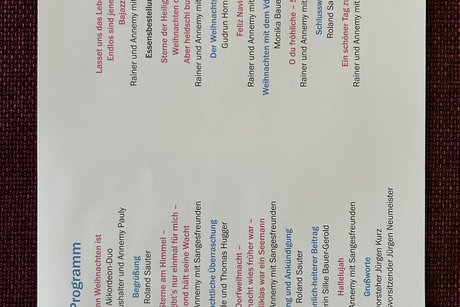 Programm
nn Weihnachten ist
Akkordeon-Duo
shalter und Annemy Pauly
Begrüßung
Roland Sauter
Sterne am Himmel –
ibt's nur einmal für mich –
ond hält seine Wacht
Annemy mit Sangesfreunden
achtliche Überraschung
de und Thomas Hugger
Dorfweihnacht –
nacht wies früher war –
olkias war ein Seemann
Annemy mit Sangesfreunden
ng und Ankündigung
Roland Sauter
nlich-heiterer Beitrag
erin Silke Bauer-Gerold
Hallelujah
Annemy mit Sangesfreunden
Grußworte
ordneter Jürgen Kurz
vorsitzender Jürgen Neumeister
Lasset uns das Leb
Endlos sind jene
Bajazz
Rainer und Annemy mit
Essensbestellun
Sterne der Heilig
Weihnachten d
Aber heidschi bu
Rainer und Annemy mit
Der Weihnacht
Gudrun Horn
Feliz Navi
Rainer und Annemy mit
Weihnachten mit dem Vd
Monika Baue
O du fröhliche – S
Rainer und Annemy mit
Schlussw
Roland Sau
Ein schöner Tag zu
Rainer und Annemy mit